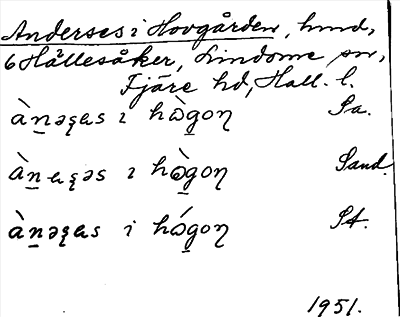 Anderses i Hovgården, hmd,
6 Hällesåker, Lindome sn,
Fjäre hd, Hall. l.
ànəʂas ɪ hɷ̀goɳ Sa.
ànaʂəs ɪ hɷ̀goɳ Sand.
ànəʂas i hɷ́goɳ St.
1951.